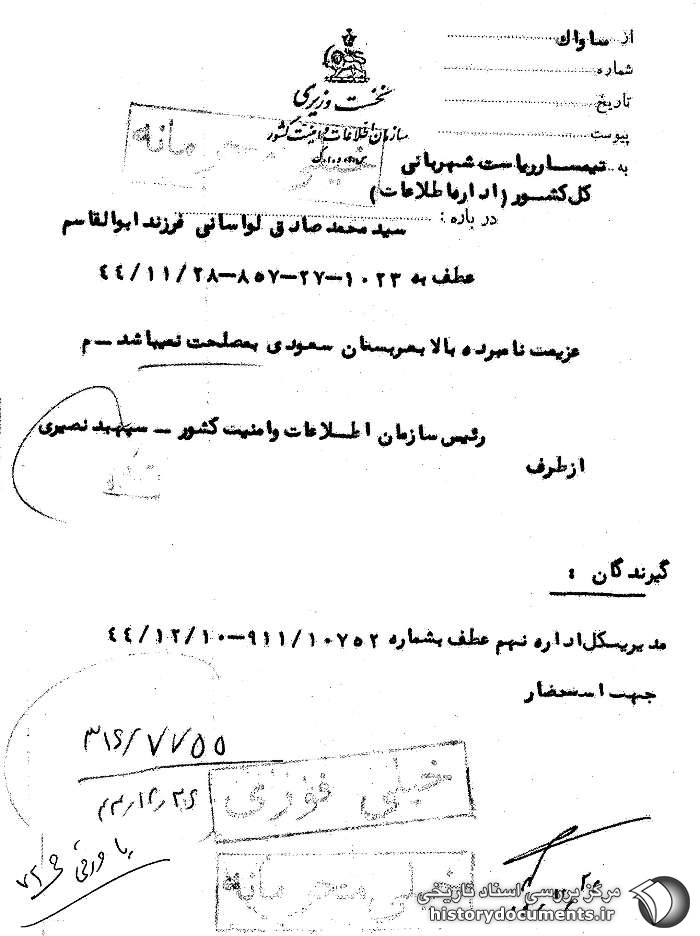 از ساواک
شماره
تاریخ
پیوست
نخست وزیری
سازمان اطلاعات و امنیت کشور
خیلی محرمانه
به تیمسار ریاست شهربانی
کل کشور (اداره اطلاعات)
در باره : سید محمد صادق لواسانی فرزند ابوالقاسم
عطف به ۱۰۲۳-۲۷-۸۵۷-۴۴/۱۱/۲۸
عزیمت نامبرده بالا بعربستان سعودی بمصلحت نمیباشد - م
رئیس سازمان اطلاعات و امنیت کشور - سپهبد نصیری
از طرف
گیرندگان :
مدیریت کل اداره نهم عطف بشماره ۹۱۱/۱۰۷۵۲-۴۴/۱۲/۱۰
جهت استحضار
۳۱۶/۷۷۵۵
خیلی فوری
خیلی محرمانه
مرکز بررسی اسناد تاریخی
historydocuments.ir